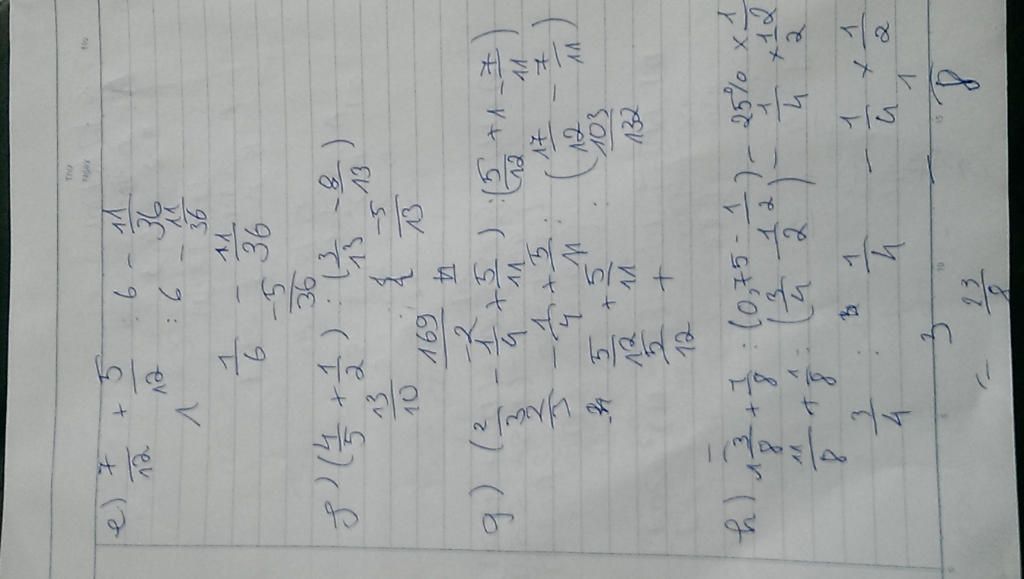 e) 7/12 + 5/12 : 6 - 11/36
1 : 6 - 11/36
1/6 - 11/36
-5/36
f) (4/5 + 1/2) : (3/13 - 8/13)
13/10 : -5/13
169
g) (2/3 - 1/4 + 5/11) : (5/12 + 1 - 7/11)
2/3 - 1/4 + 5/11 : (17/12 - 7/11)
5/12 + 5/11 : 103/132
5/12 +
h) 1 3/8 + 1/8 : (0,75 - 1/2) - 25% × 1/2
11/8 + 1/8 : (3/4 - 1/2) - 1/4 × 1/2
3/4 : 1/4 - 1/4 × 1/2
3 - 1/8
= 23/8